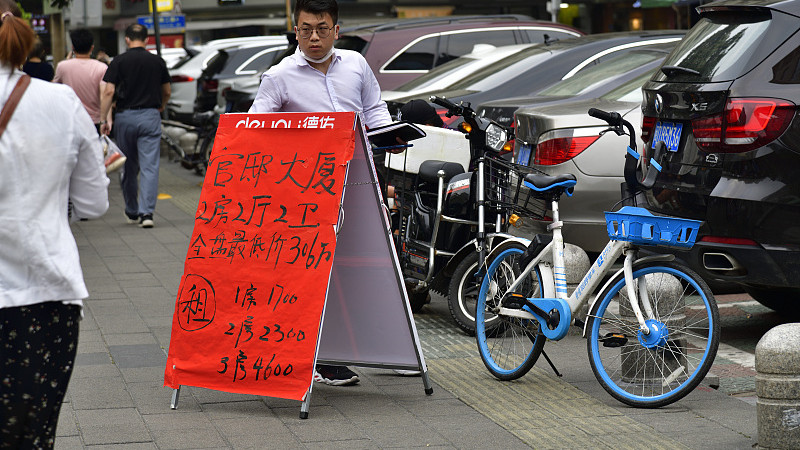 deyou德佑
官邸大厦
2房2厅2卫
全盘最低价306万
租
1房1700
2房2300
3房4600
X5